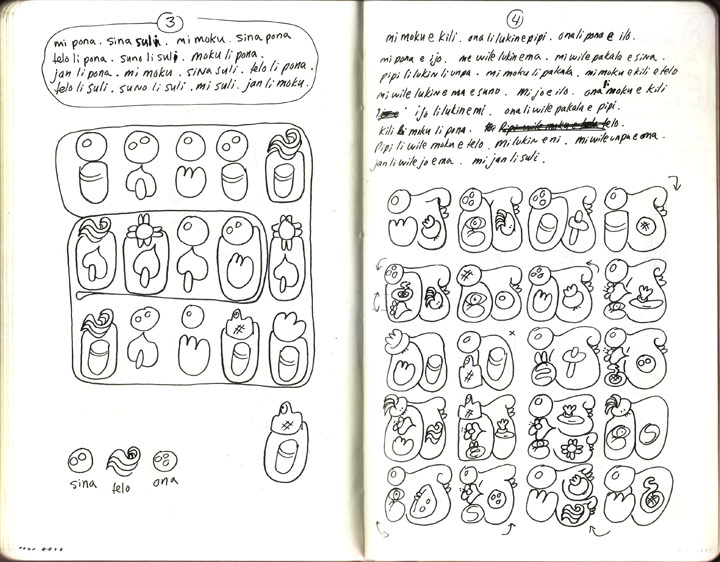 3
mi pona. sina suli. mi moku. sina pona
telo li pona. suno li suli. moku li pona.
jan li pona. mi moku. sina suli. telo li pona.
telo li suli. suno li suli. mi suli. jan li moku.
sina
telo
ona
4
mi moku e kili. ona li lukin e pipi. ona li pona e ilo.
mi pona e ijo. me wile lukin e ma. mi wile pakala e sina.
pipi li lukin li unpa. mi moku li pakala. mi moku e kili e telo
mi wile lukin e ma e suno. mi jo e ilo. ona li moku e kili
ijo li lukin e mi. ona li wile pakala e pipi.
kili li moku li pona. telo.
Pipi li wile moku e telo. mi lukin e ni. mi wile unpa e ona.
jan li wile jo e ma. mi jan li suli.